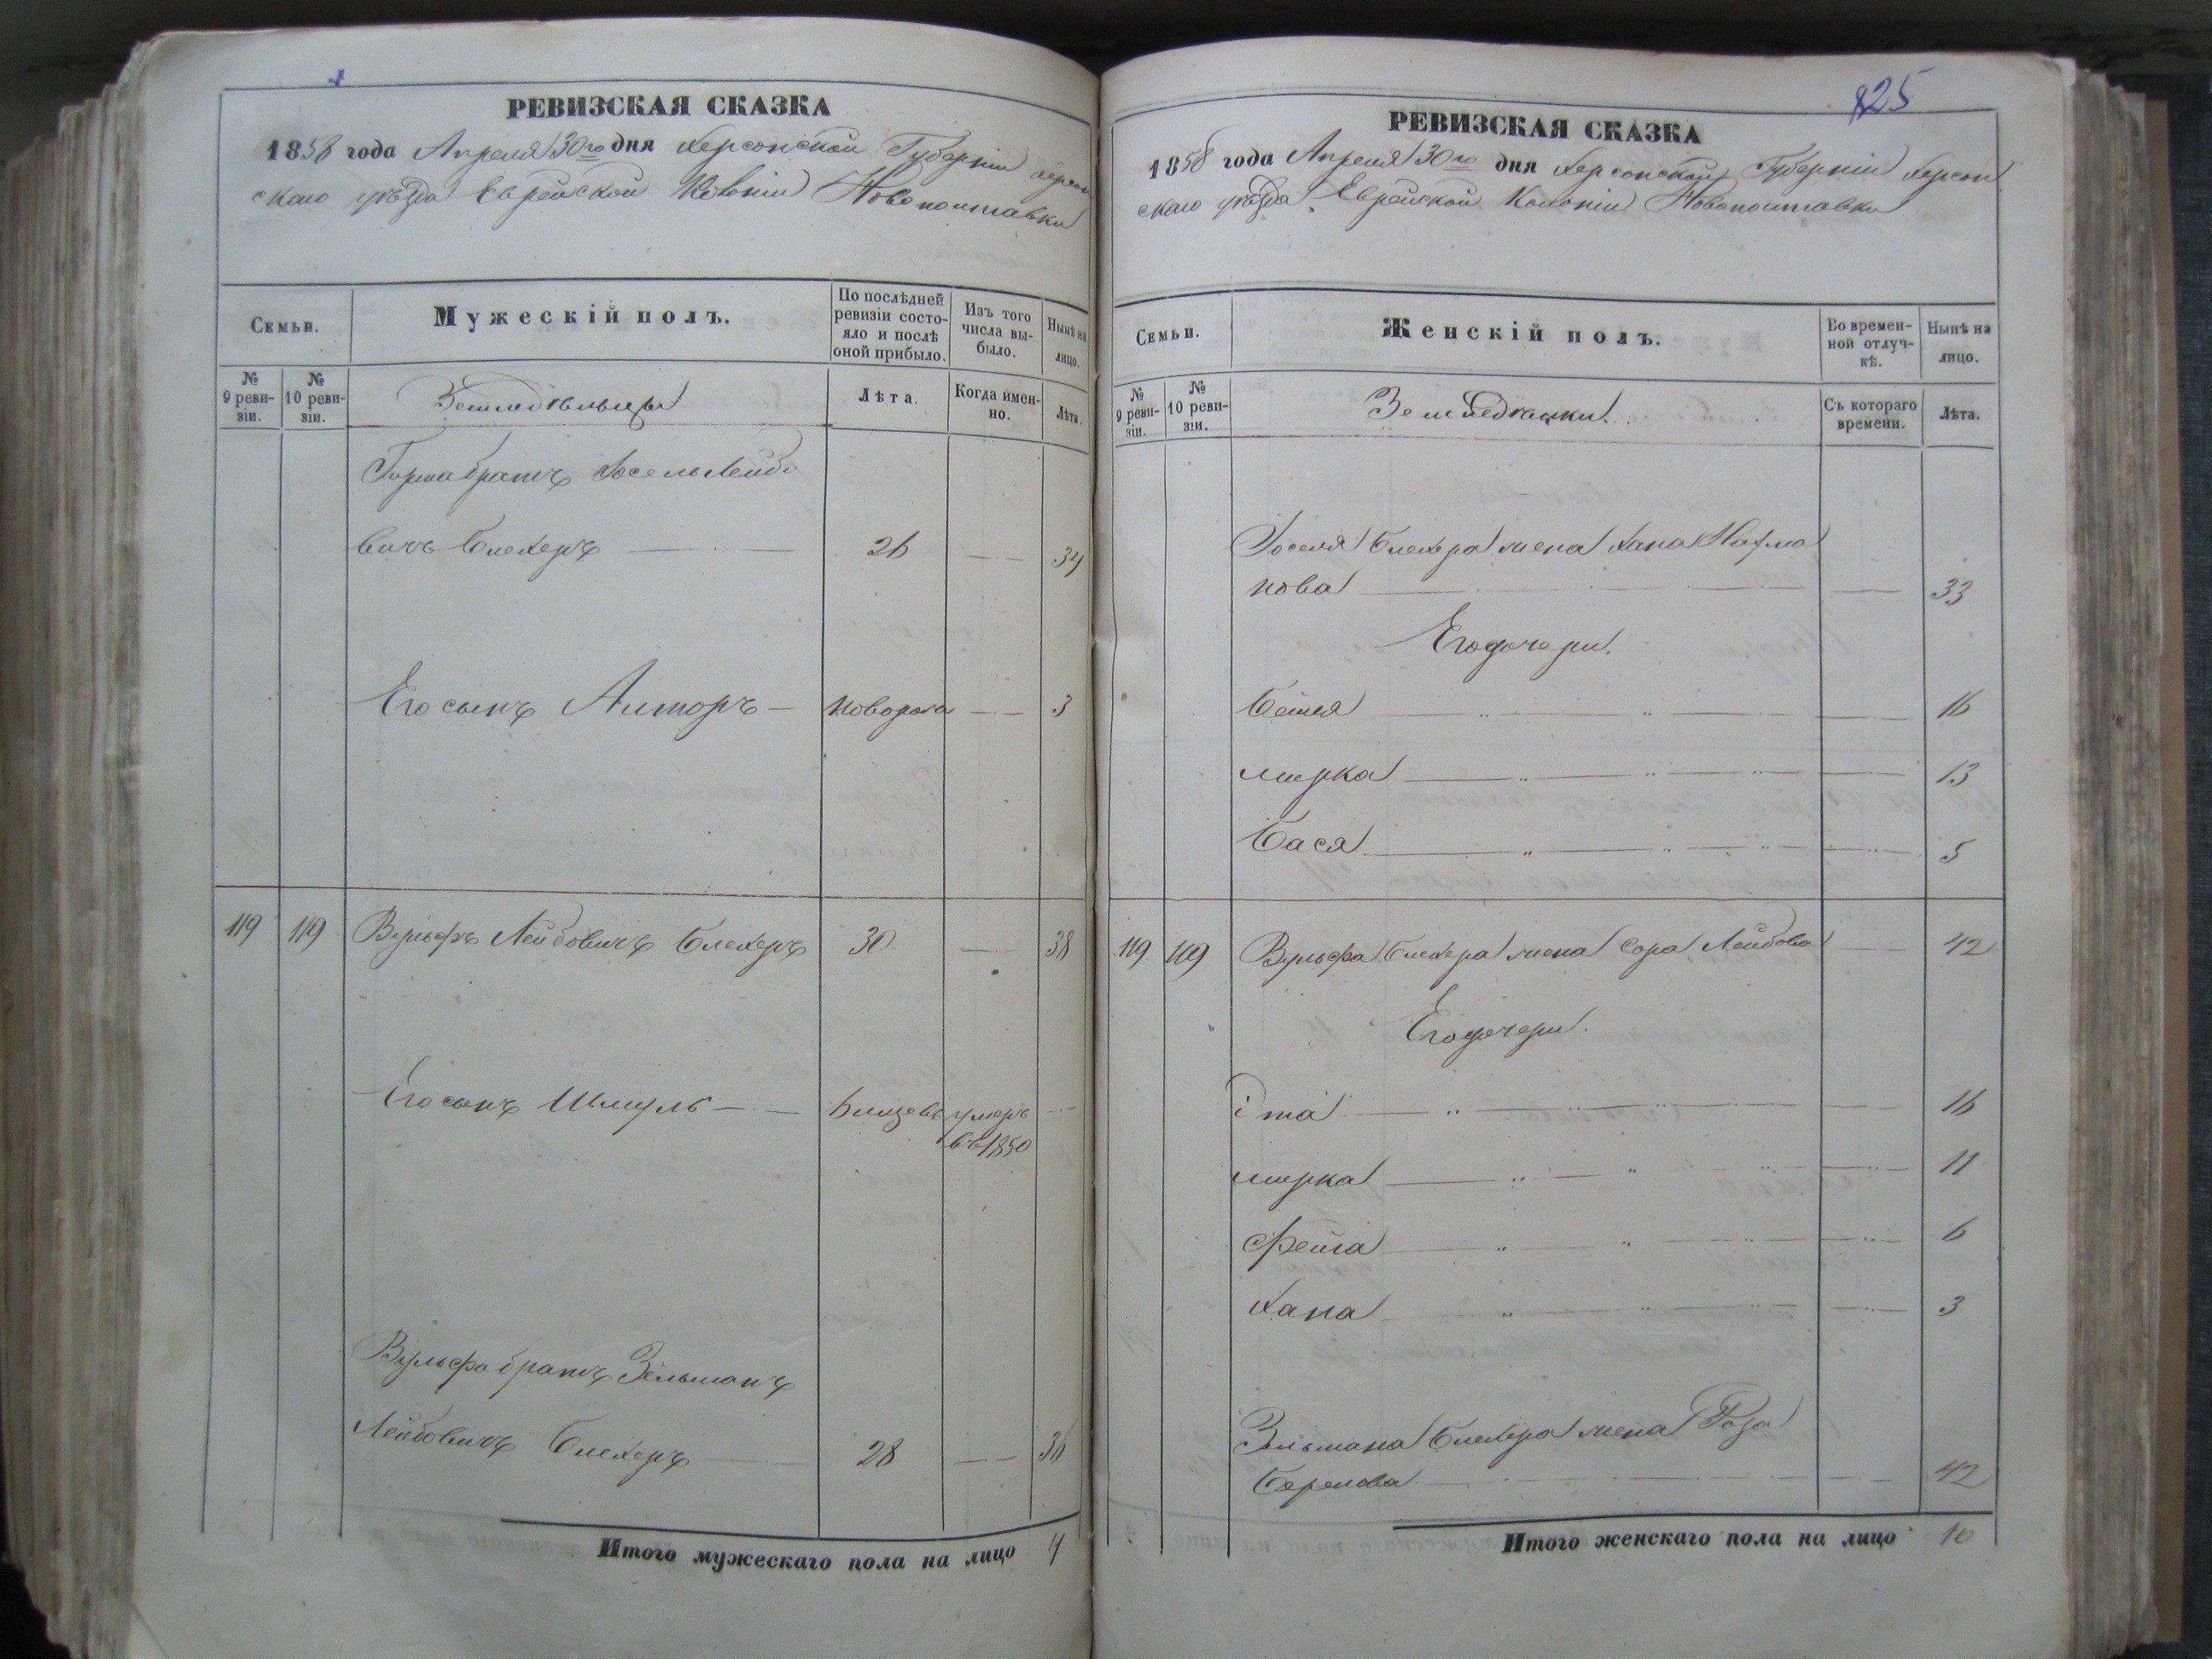 РЕВИЗСКАЯ СКАЗКА
1858 года Апреля 30го дня Херсонской Губерніи Херсон
скаго уѣзда Еврейской Колоніи Новополтавки
Семьи.
Мужескій полъ.
По послѣдней
ревизіи состо-
яло и послѣ
оной прибыло.
Изъ того
числа вы-
было.
Нынѣ на
лицо.
№
9 реви-
зіи.
№
10 реви-
зіи.
Земледѣльцы
Лѣта.
Когда имен-
но.
Лѣта.
братъ Іосель Лейбо
вичъ Блехеръ 26 34
Его сынъ Алторъ новорож 3
119 119 Вульфъ Лейбовичъ Блехеръ 30 38
Его сынъ Шмуль умеръ
въ 1850
Вульфа братъ Зельманъ
Лейбовичъ Блехеръ 28 36
Итого мужескаго пола на лицо 4
825
РЕВИЗСКАЯ СКАЗКА
1858 года Апреля 30го дня Херсонской Губерніи Херсон
скаго уѣзда Еврейской Колоніи Новополтавки
Семьи.
Женскій полъ.
Во времен-
ной отлуч-
кѣ.
Нынѣ на
лицо.
№
9 реви-
зіи.
№
10 реви-
зіи.
Земледѣлки
Съ котораго
времени.
Лѣта.
Іоселя Блехера жена Хана Нахма
нова 33
Его дочери
Бейля 16
Мирка 13
Бася 5
119 119 Вульфа Блехера жена Сора Лейбова 42
Его дочери
Ита 16
Мирка 11
Фейга 6
Хана 3
Зельмана Блехера жена Роза
Берелова 42
Итого женскаго пола на лицо 10